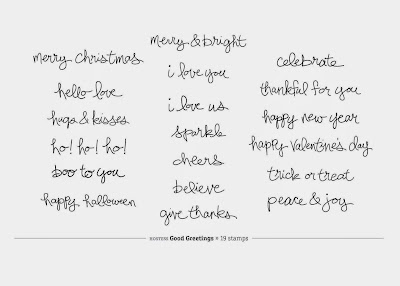 merry christmas
hello love
hugs & kisses
ho! ho! ho!
boo to you
happy halloween
merry & bright
i love you
i love us
sparkle
cheers
believe
give thanks
celebrate
thankful for you
happy new year
happy valentine's day
trick or treat
peace & joy
HOSTESS Good Greetings • 19 stamps